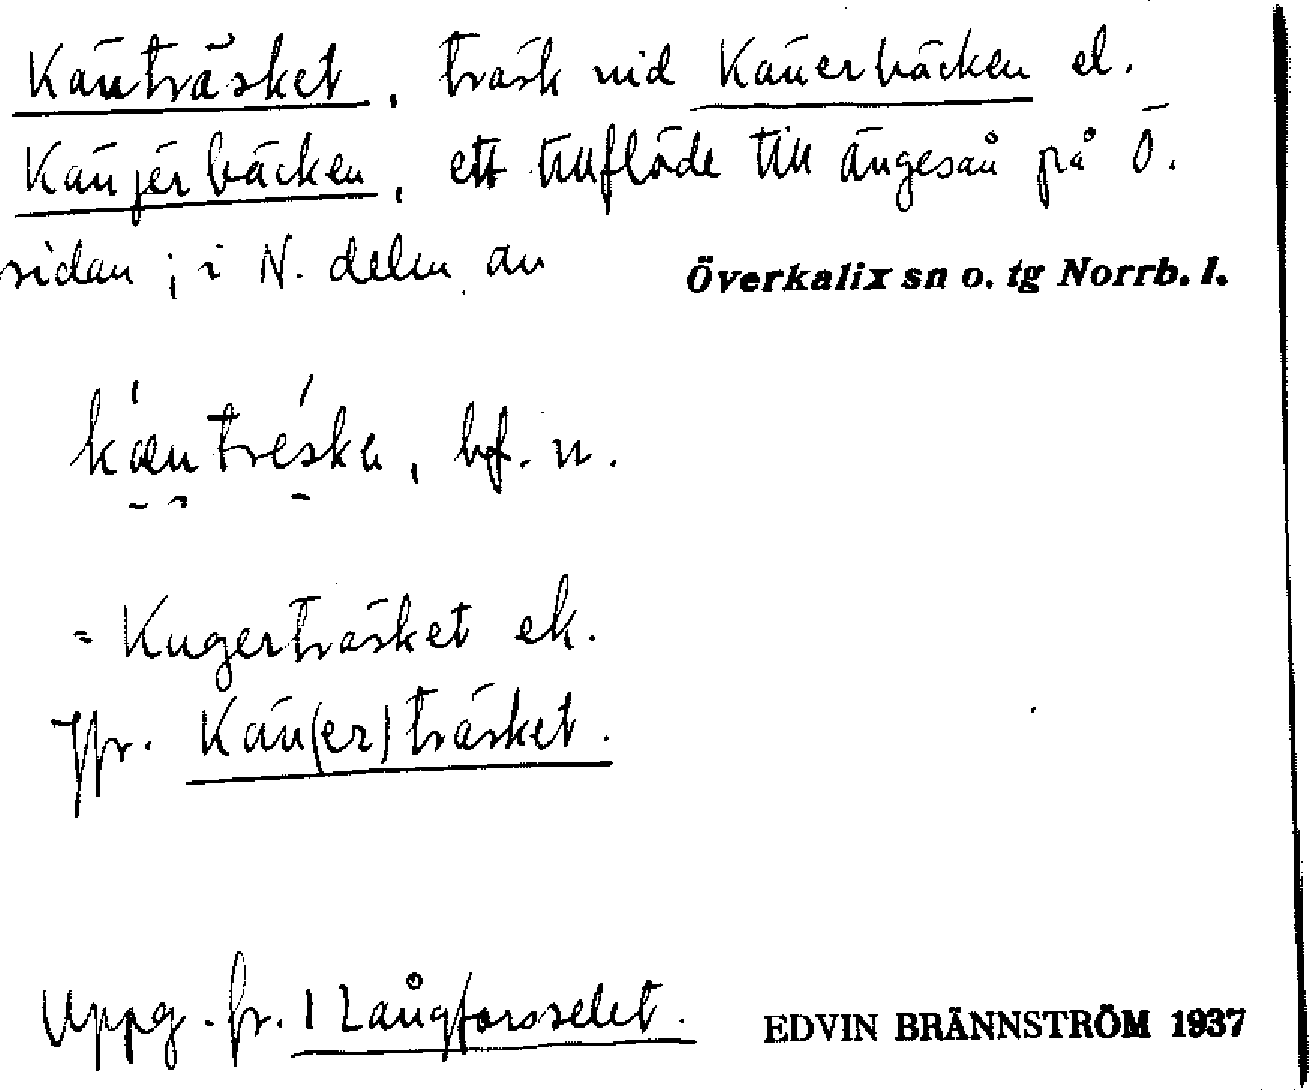 Käuträsket, träsk vid Käuerbäcken el.
Käujerbäcken, ett tillflöde till Ängesån på Ö.
sidan; i N. delen av Överkalix sn o. tg Norrb. l.
kæutréske, bf. n.
= Kugerträsket ek.
Jfr. Käu(er)träsket.
Uppg. fr. 1 Långforsselet. EDVIN BRÄNNSTRÖM 1937